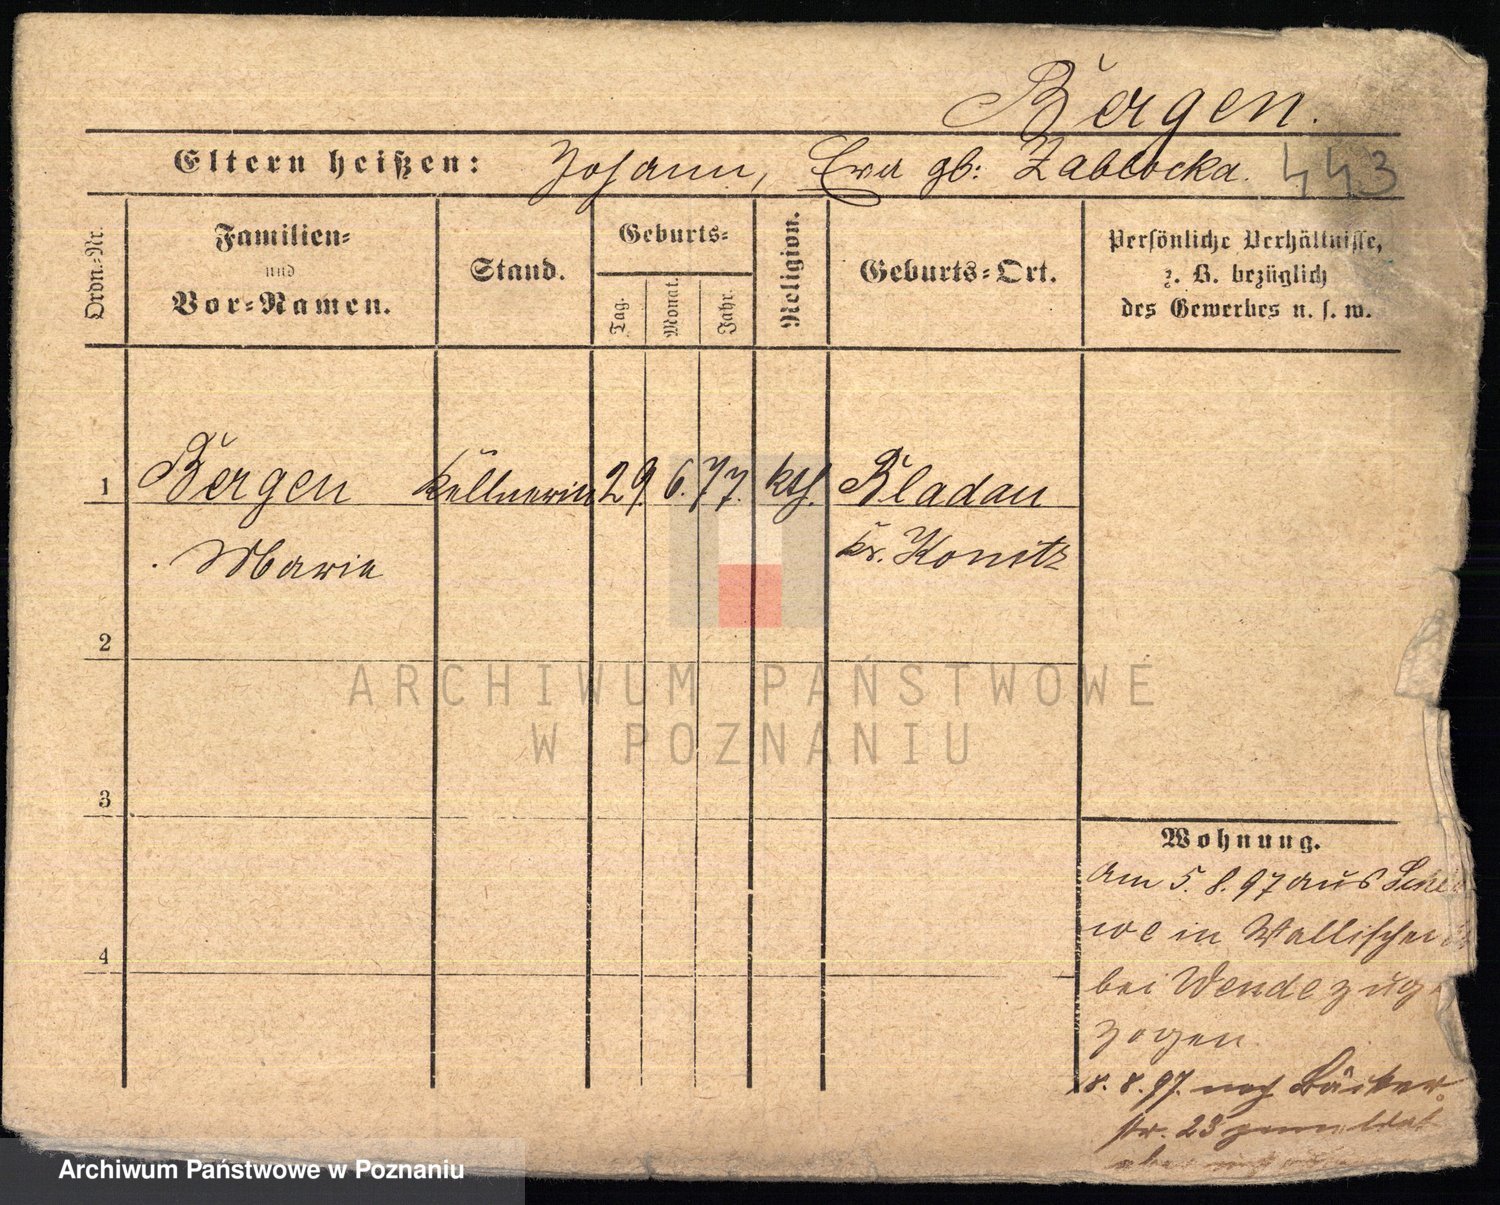 Bergen.
Eltern heißen: Johann, Eva gb: Zablocka. 443
Ordn.-Nr.
Familien-
und
Vor-Namen.
Stand.
Geburts-
Tag.
Monat.
Jahr.
Religion.
Geburts-Ort.
Persönliche Verhältnisse,
z. B. bezüglich
des Gewerbes u. s. w.
1 Bergen Kellnerin 29. 6. 77. kth. Bladau
Marie Kr. Konitz
2
ARCHIWUM PAŃSTWOWE
W POZNANIU
3
Wohnung.
Am 5.8.97 aus
in Wallischei
4
bei Wende zuge
zogen.
8. 8. 97. nach Bäcker
str. 23 gemeldet
Archiwum Państwowe w Poznaniu